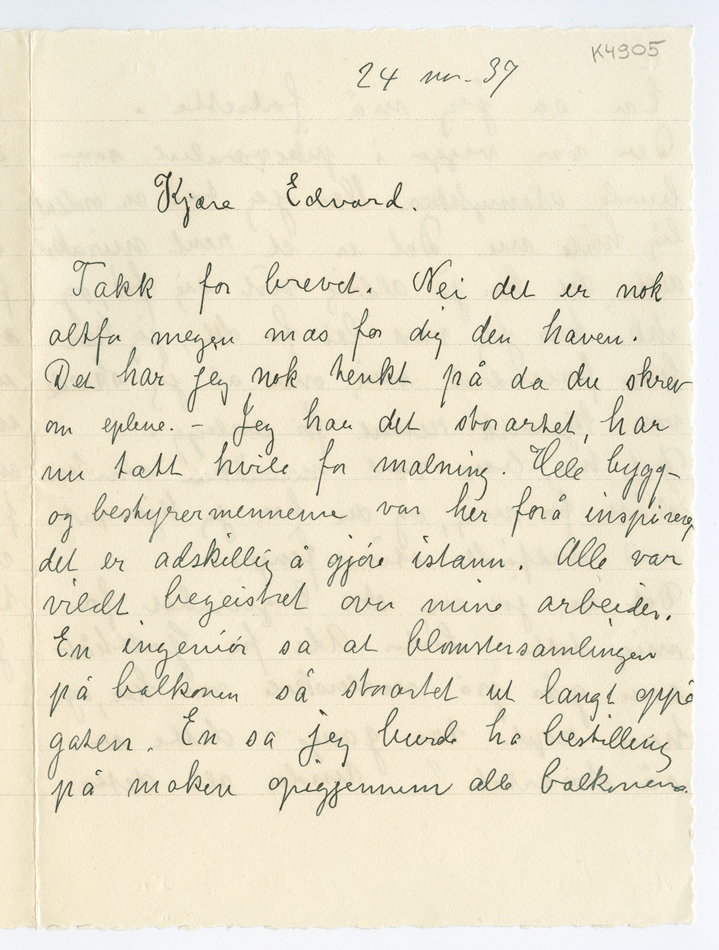 K4905
24 nov. 37
Kjære Edvard.
Takk for brevet. Nei det er nok
altfor megen mas for dig den haven.
Det har jeg nok tenkt på da du skrev
om eplene. – Jeg har det storartet, har
nu tatt hvile for malning. Hele bygg-
og bestyrermennene var her forå inspisere,
det er adskillig å gjøre istann. Alle var
vildt begeistret over mine arbeider.
En ingeniör sa at blomstersamlingen
på balkonen så storartet ut langt oppå
gaten. En sa jeg burde ha bestilling
på maken opigjennem alle balkonene.